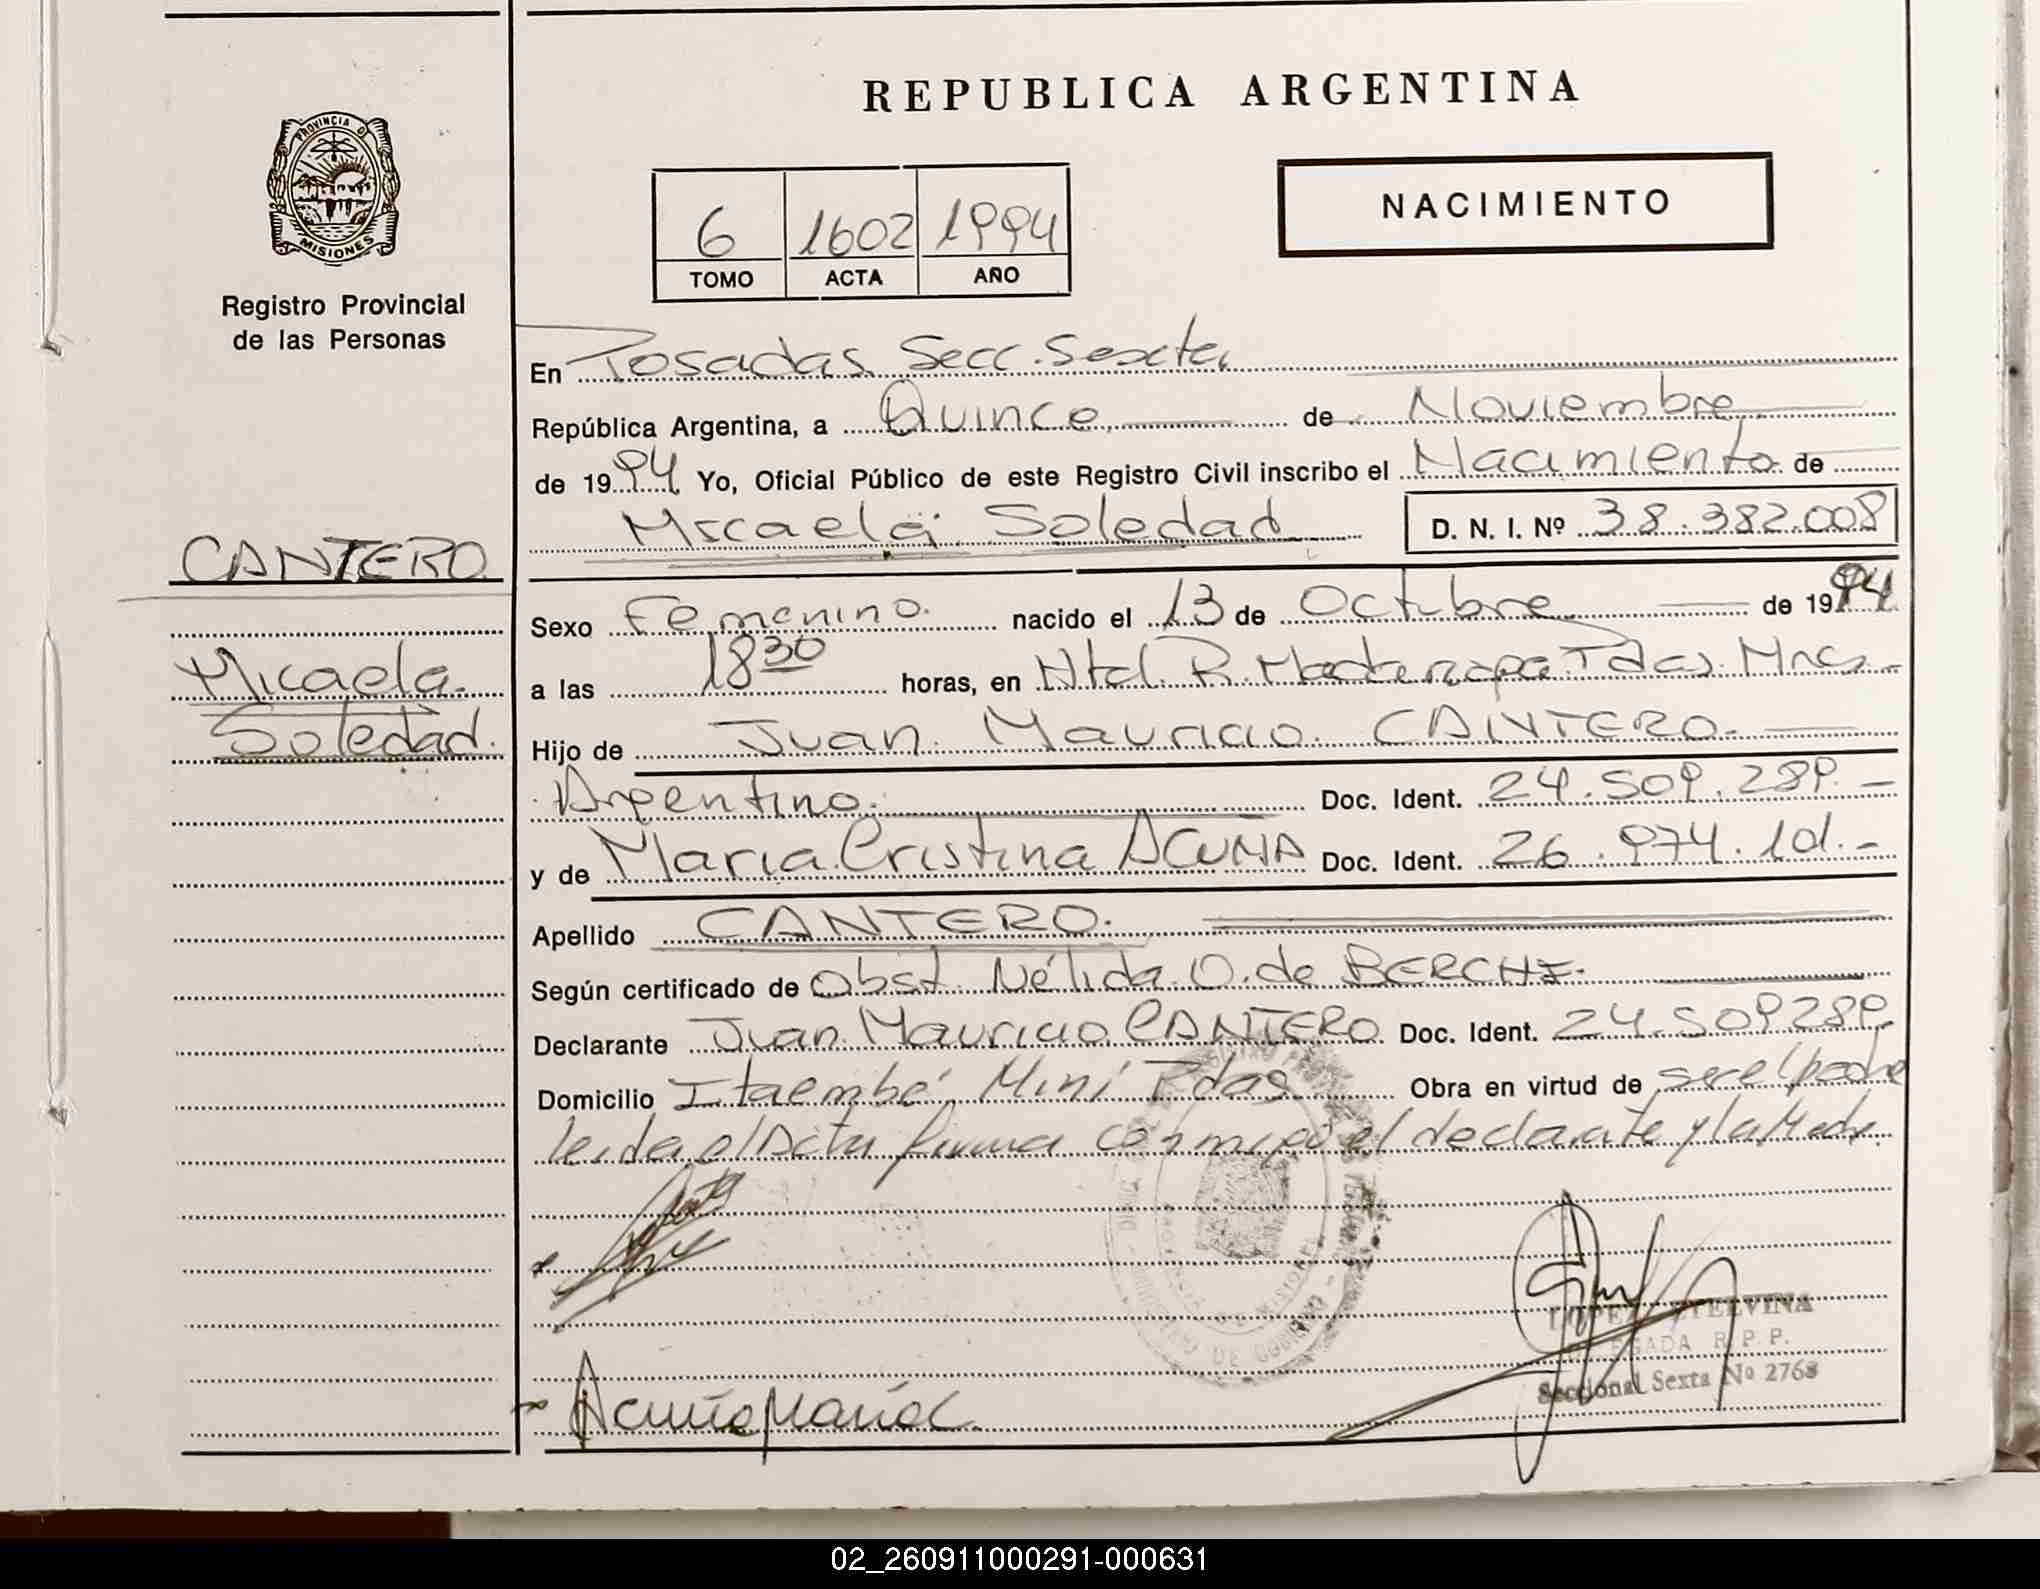 REPUBLICA ARGENTINA
PROVINCIA D
MISIONES
Registro Provincial
de las Personas
NACIMIENTO
6 1602 1994
TOMO ACTA AÑO
En Posadas Secc. Sexta
República Argentina, a Quince de Noviembre
de 1994 Yo, Oficial Público de este Registro Civil inscribo el Nacimiento de
Micaela Soledad D. N. I. Nº 38.382.008
CANTERO
Micaela
Soledad.
Sexo Femenino. nacido el 13 de Octubre de 1994
a las 18 30 horas, en Htal. R. Madariaga Pdas. Mnes
Hijo de Juan Mauricio CANTERO.
Argentino. Doc. Ident. 24.509.289.-
y de María Cristina ACUÑA Doc. Ident. 26.974.101.-
Apellido CANTERO.
Según certificado de Obst. Nélida O. de BERCHE.
Declarante Juan Mauricio CANTERO Doc. Ident. 24.509289
Domicilio Itaembé Miní Pdas Obra en virtud de ser el padre
leida el Acta firma conmigo el declarante y la Madre.
LOPEZ ETELVINA
R. P. P.
Seccional Sexta Nº 2768
Acuña María C
02_260911000291-000631